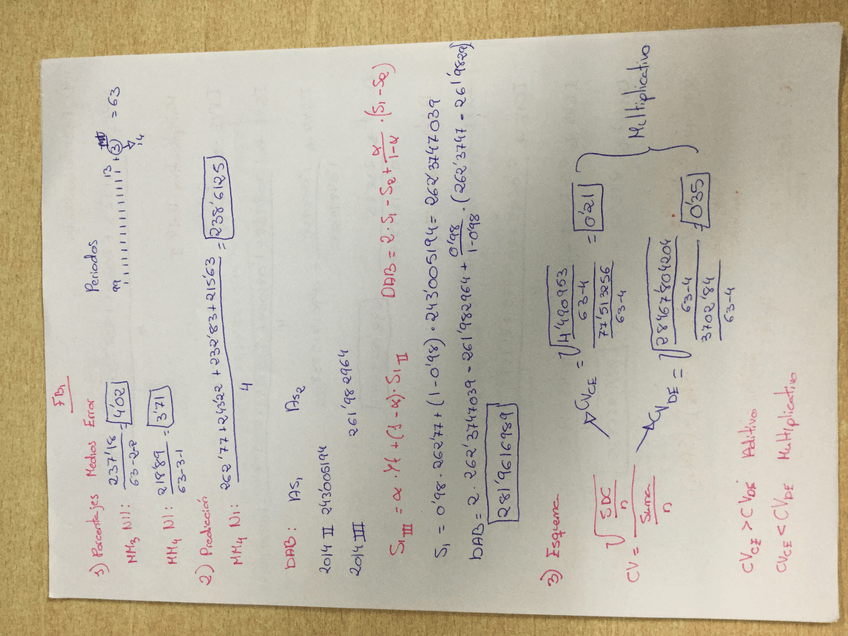 FB1
1) Porcentajes Medios Error
Periodos
99 13 + 3 III = 63
14
MM3 N11: 237'18 / 63-2-2 = 4'02
MM4 N1: 218'89 / 63-3-1 = 3'71
2) Predicción
MM4 N1: 262'77 + 243'22 + 232'83 + 215'63 / 4 = 238'6125
DAB: AS1 AS2
2014 II 243'005194
2014 III 261'982964
S1 III = α · Yt + (1-α) · S1 II
DAB = 2 · S1 - S2 + α / 1-α · (S1 - S2)
S1 = 0'98 · 262'77 + (1-0'98) · 243'005194 = 262'3747039
DAB = 2 · 262'3747039 - 261'982964 + 0'98 / 1-0'98 · (262'3747 - 261'9829)
281'9616989
3) Esquema
CV = √ SDC / n / Suma / n
CV CE = √ 4'490953 / 63-4 / 77'513256 / 63-4 = 0'21
CV DE = √ 28467'804204 / 63-4 / 3702'84 / 63-4 = 0'35
Multiplicativo
CV CE > CV DE Aditivo
CV CE < CV DE Multiplicativo